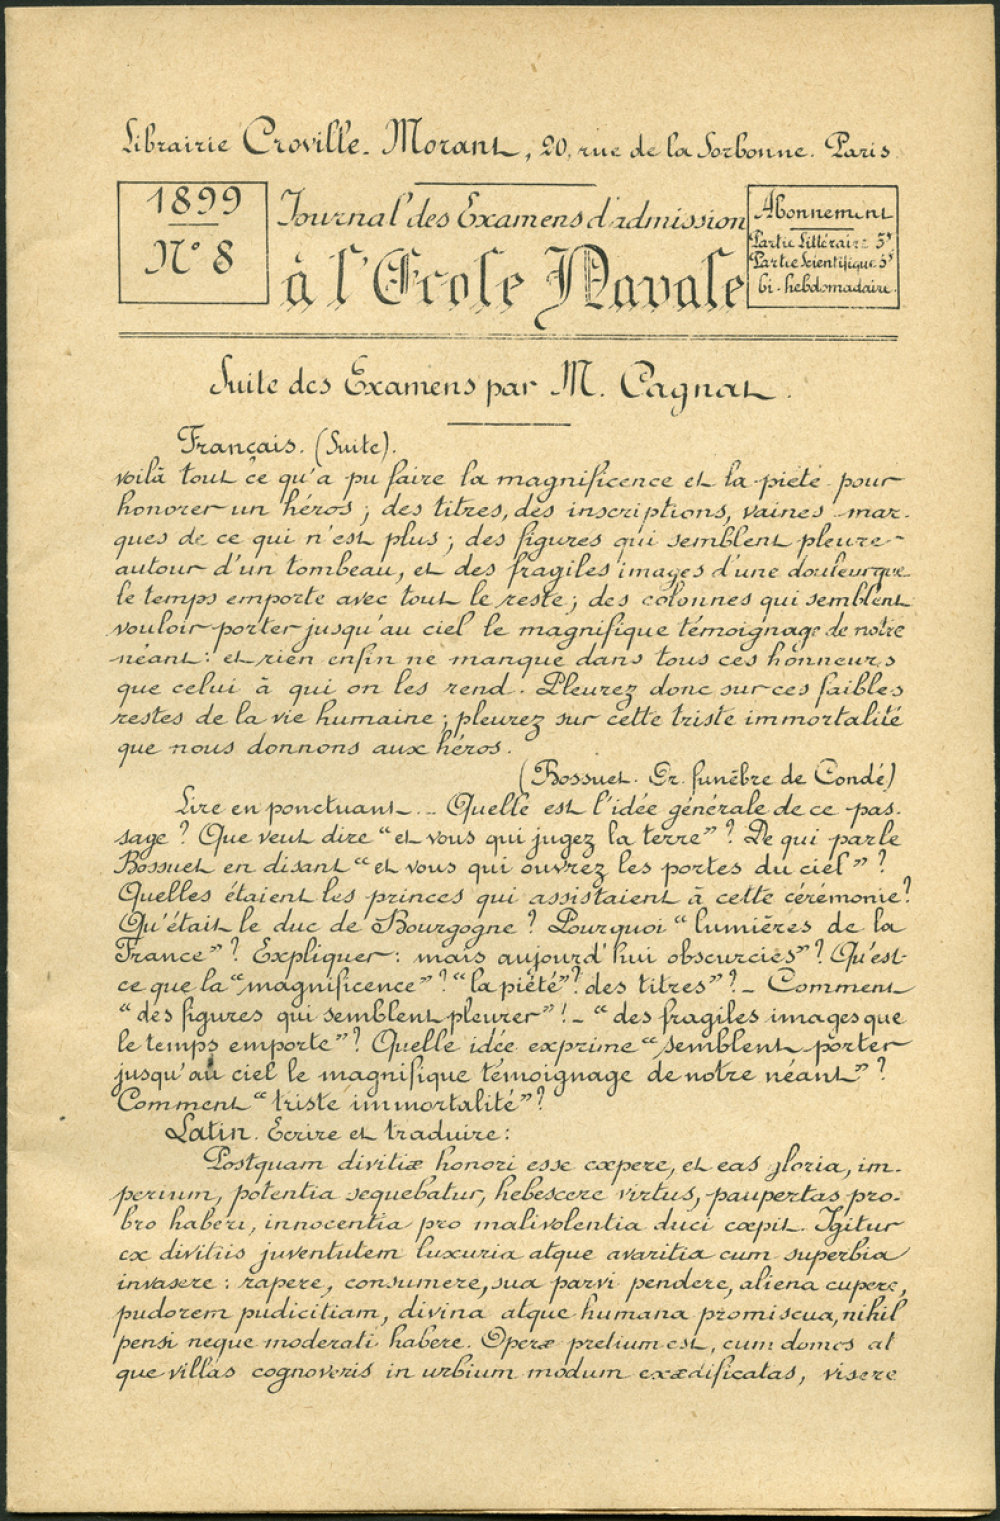 Librairie Croville-Morant, 20, rue de la Sorbonne. Paris.
1899
N° 8
Journal des Examens d'admission
à l'Ecole Navale
Abonnement
Partie Littéraire 5f
Partie Scientifique 5f
bi-hebdomadaire.
Suite des Examens par M. Cagnat.
Français. (Suite).
voilà tout ce qu'a pu faire la magnificence et la piété pour
honorer un héros; des titres, des inscriptions, vaines mar-
ques de ce qui n'est plus; des figures qui semblent pleurer
autour d'un tombeau, et des fragiles images d'une douleur que
le temps emporte avec tout le reste; des colonnes qui semblent
vouloir porter jusqu'au ciel le magnifique témoignage de notre
néant: et rien enfin ne manque dans tous ces honneurs
que celui à qui on les rend. Pleurez donc sur ces faibles
restes de la vie humaine; pleurez sur cette triste immortalité
que nous donnons aux héros.
(Bossuet. Or. funèbre de Condé)
Lire en ponctuant... Quelle est l'idée générale de ce pas-
sage? Que veut dire "et vous qui jugez la terre"? De qui parle
Bossuet en disant "et vous qui ouvrez les portes du ciel"?
Quelles étaient les princes qui assistaient à cette cérémonie?
Qu'était le duc de Bourgogne? Pourquoi "lumières de la
France"? Expliquer: mais aujourd'hui obscurcies"? Qu'est-
ce que la "magnificence"? "la piété"? des titres"? - Comment
"des figures qui semblent pleurer"! - "des fragiles images que
le temps emporte"? Quelle idée exprime "semblent porter
jusqu'au ciel le magnifique témoignage de notre néant"?
Comment "triste immortalité"?
Latin. Ecrire et traduire:
Postquam divitiæ honori esse cœpere, et eas gloria, im-
perium, potentia sequebatur, hebescere virtus, paupertas pro-
bro haberi, innocentia pro malivolentia duci cœpit. Igitur
ex divitiis juventutem luxuria atque avaritia cum superbia
invasere: rapere, consumere, sua parvi pendere, aliena cupere,
pudorem pudicitiam, divina atque humana promiscua, nihil
pensi neque moderati habere. Operæ pretium est, cum domos at
que villas cognoveris in urbium modum exædificatas, visere